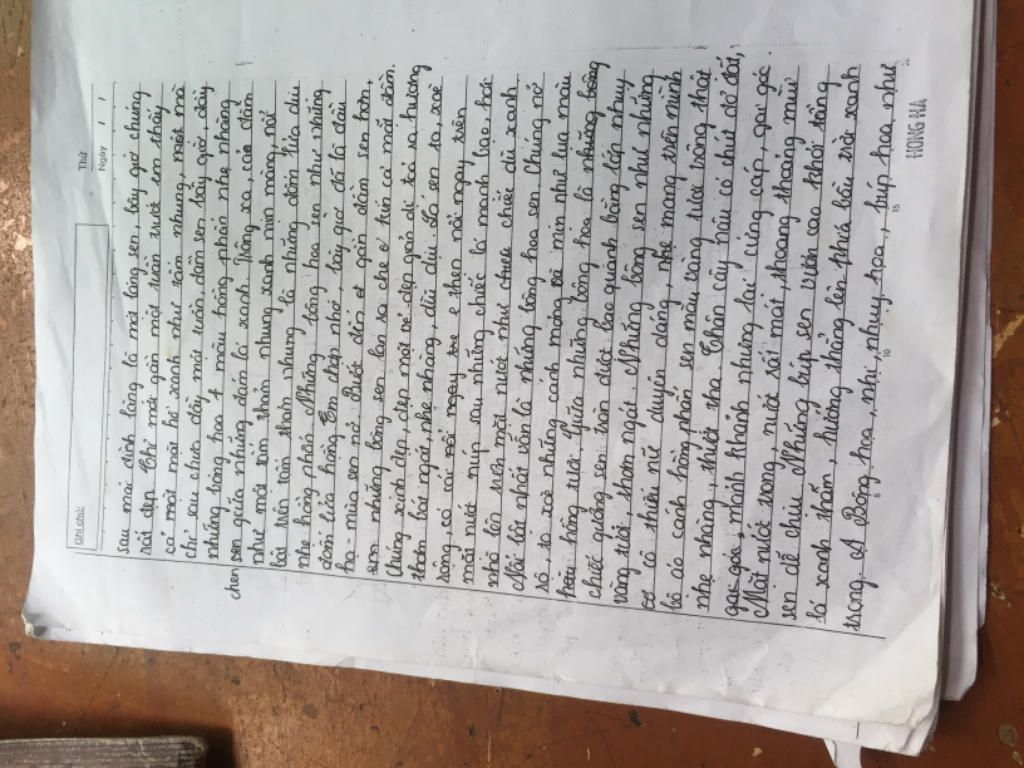 Ghi chú:
Thứ
Ngày / /
sau mái đình làng là một bông sen, bây giờ chúng
rất đẹp. Chỉ mới gần một tuần trước em thấy
cả một mặt hồ xanh như tấm nhung, một mà
chỉ sau chưa đầy một tuần, đầm sen bây giờ, đầy
những bông hoa 4 màu hồng phấn nhẹ nhàng
chen sen giữa những đám lá xanh. Trông xa, cả đầm
như một tấm thảm nhung xanh mịn màng, nổi
bật trên tấm thảm nhung là những đốm lửa dịu
nhẹ hồng phấn. Những bông hoa sen như những
đốm lửa hồng. Em chợt nhớ, bây giờ đã là đầu
hạ - mùa sen nở. Bước đến gần đầm sen hơn,
những bông sen lan xa che kín cả mặt đầm.
Chúng xinh đẹp, đẹp một vẻ đẹp giản dị toả ra hương
thơm bát ngát, nhẹ nhàng, dìu dịu. Số sen ta xoè
rộng, có cái mới ngay e thẹn nổi ngay trên
mặt nước núp sau những chiếc lá mạnh bạo, hơi
nhô lên trên mặt nước như chiếc dù xanh
Nổi bật nhất vẫn là những bông hoa sen. Chúng nở
rộ, to xoè những cánh mỏng mịn như lụa màu
hồng tươi, giữa những bông hoa là những bông
chiếc gương sen tròn được bao quanh bằng lớp nhuỵ
vàng tươi thơm ngát. Những bông sen như những
cô thiếu nữ duyên dáng, nhẹ mang trên mình
bộ áo cánh hồng phấn sen màu vàng tươi trông thật
nhẹ nhàng, thướt tha. Thân cây nâu có chút đo đỏ,
gai góc, mảnh khảnh nhưng lại cứng cáp, gai góc
Mặt nước trong, nước rất mát, thoang thoảng mùi
sen dễ chịu. Những búp sen vươn cao khỏi tầng
lá xanh thẳm, hướng thẳng lên phía bầu trời xanh
trong. Bông hoa, nhị, nhuỵ hoa, búp hoa, như
5 10 15
HONG HA